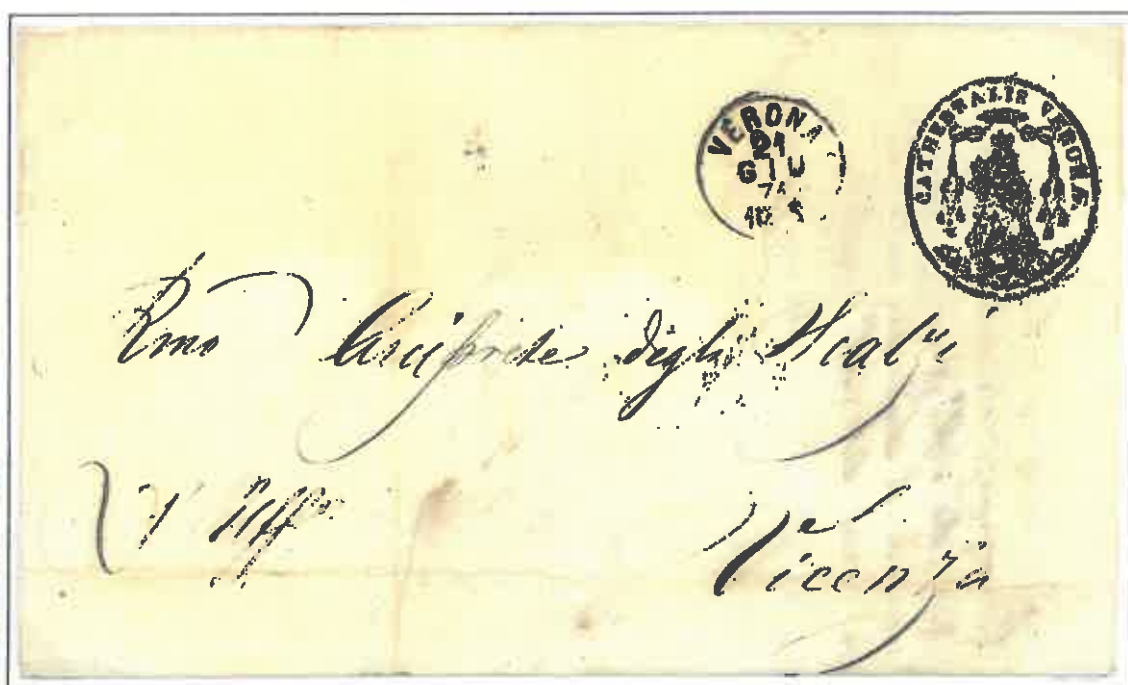 VERONA
21
GIU
74
10 S
CATHEDRALIS VERONÆ
Rmo Arciprete degli Scalzi
d'Uffo
Vicenza